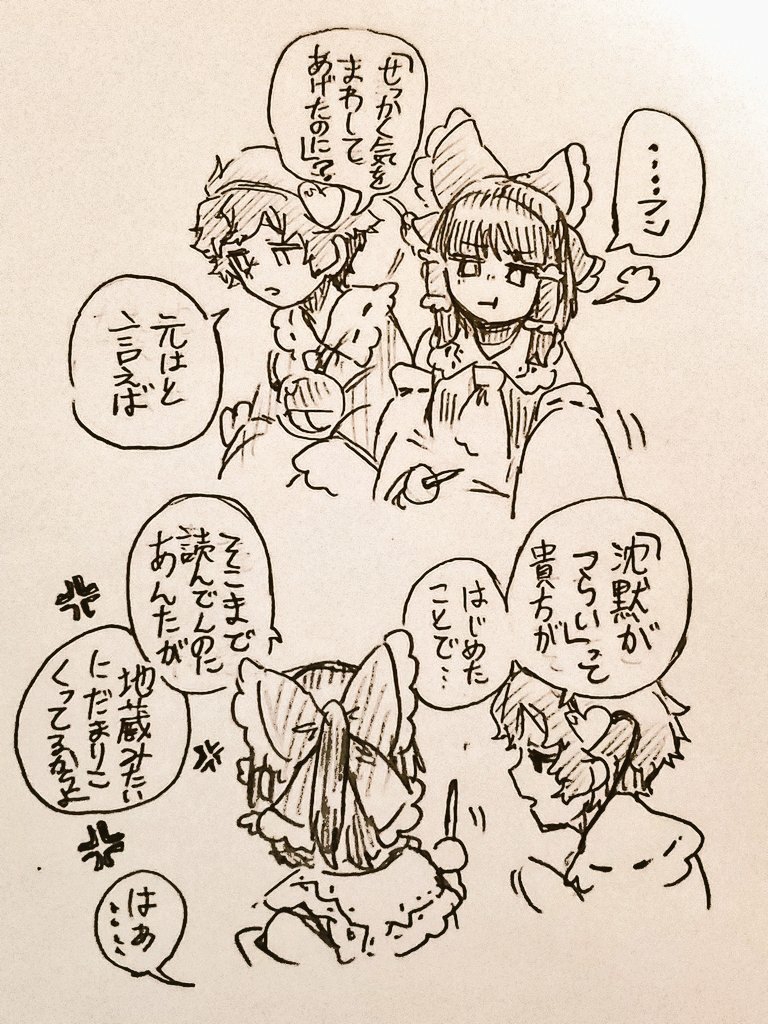 ……フン
「せっかく気を
まわして
あげたのに」?
元はと
言えば
「沈黙が
つらい」って
貴方が
はじめた
ことで…
そこまで
読んでんのに
あんたが
地蔵みたい
にだまりこ
くってるからよ
はぁ
……